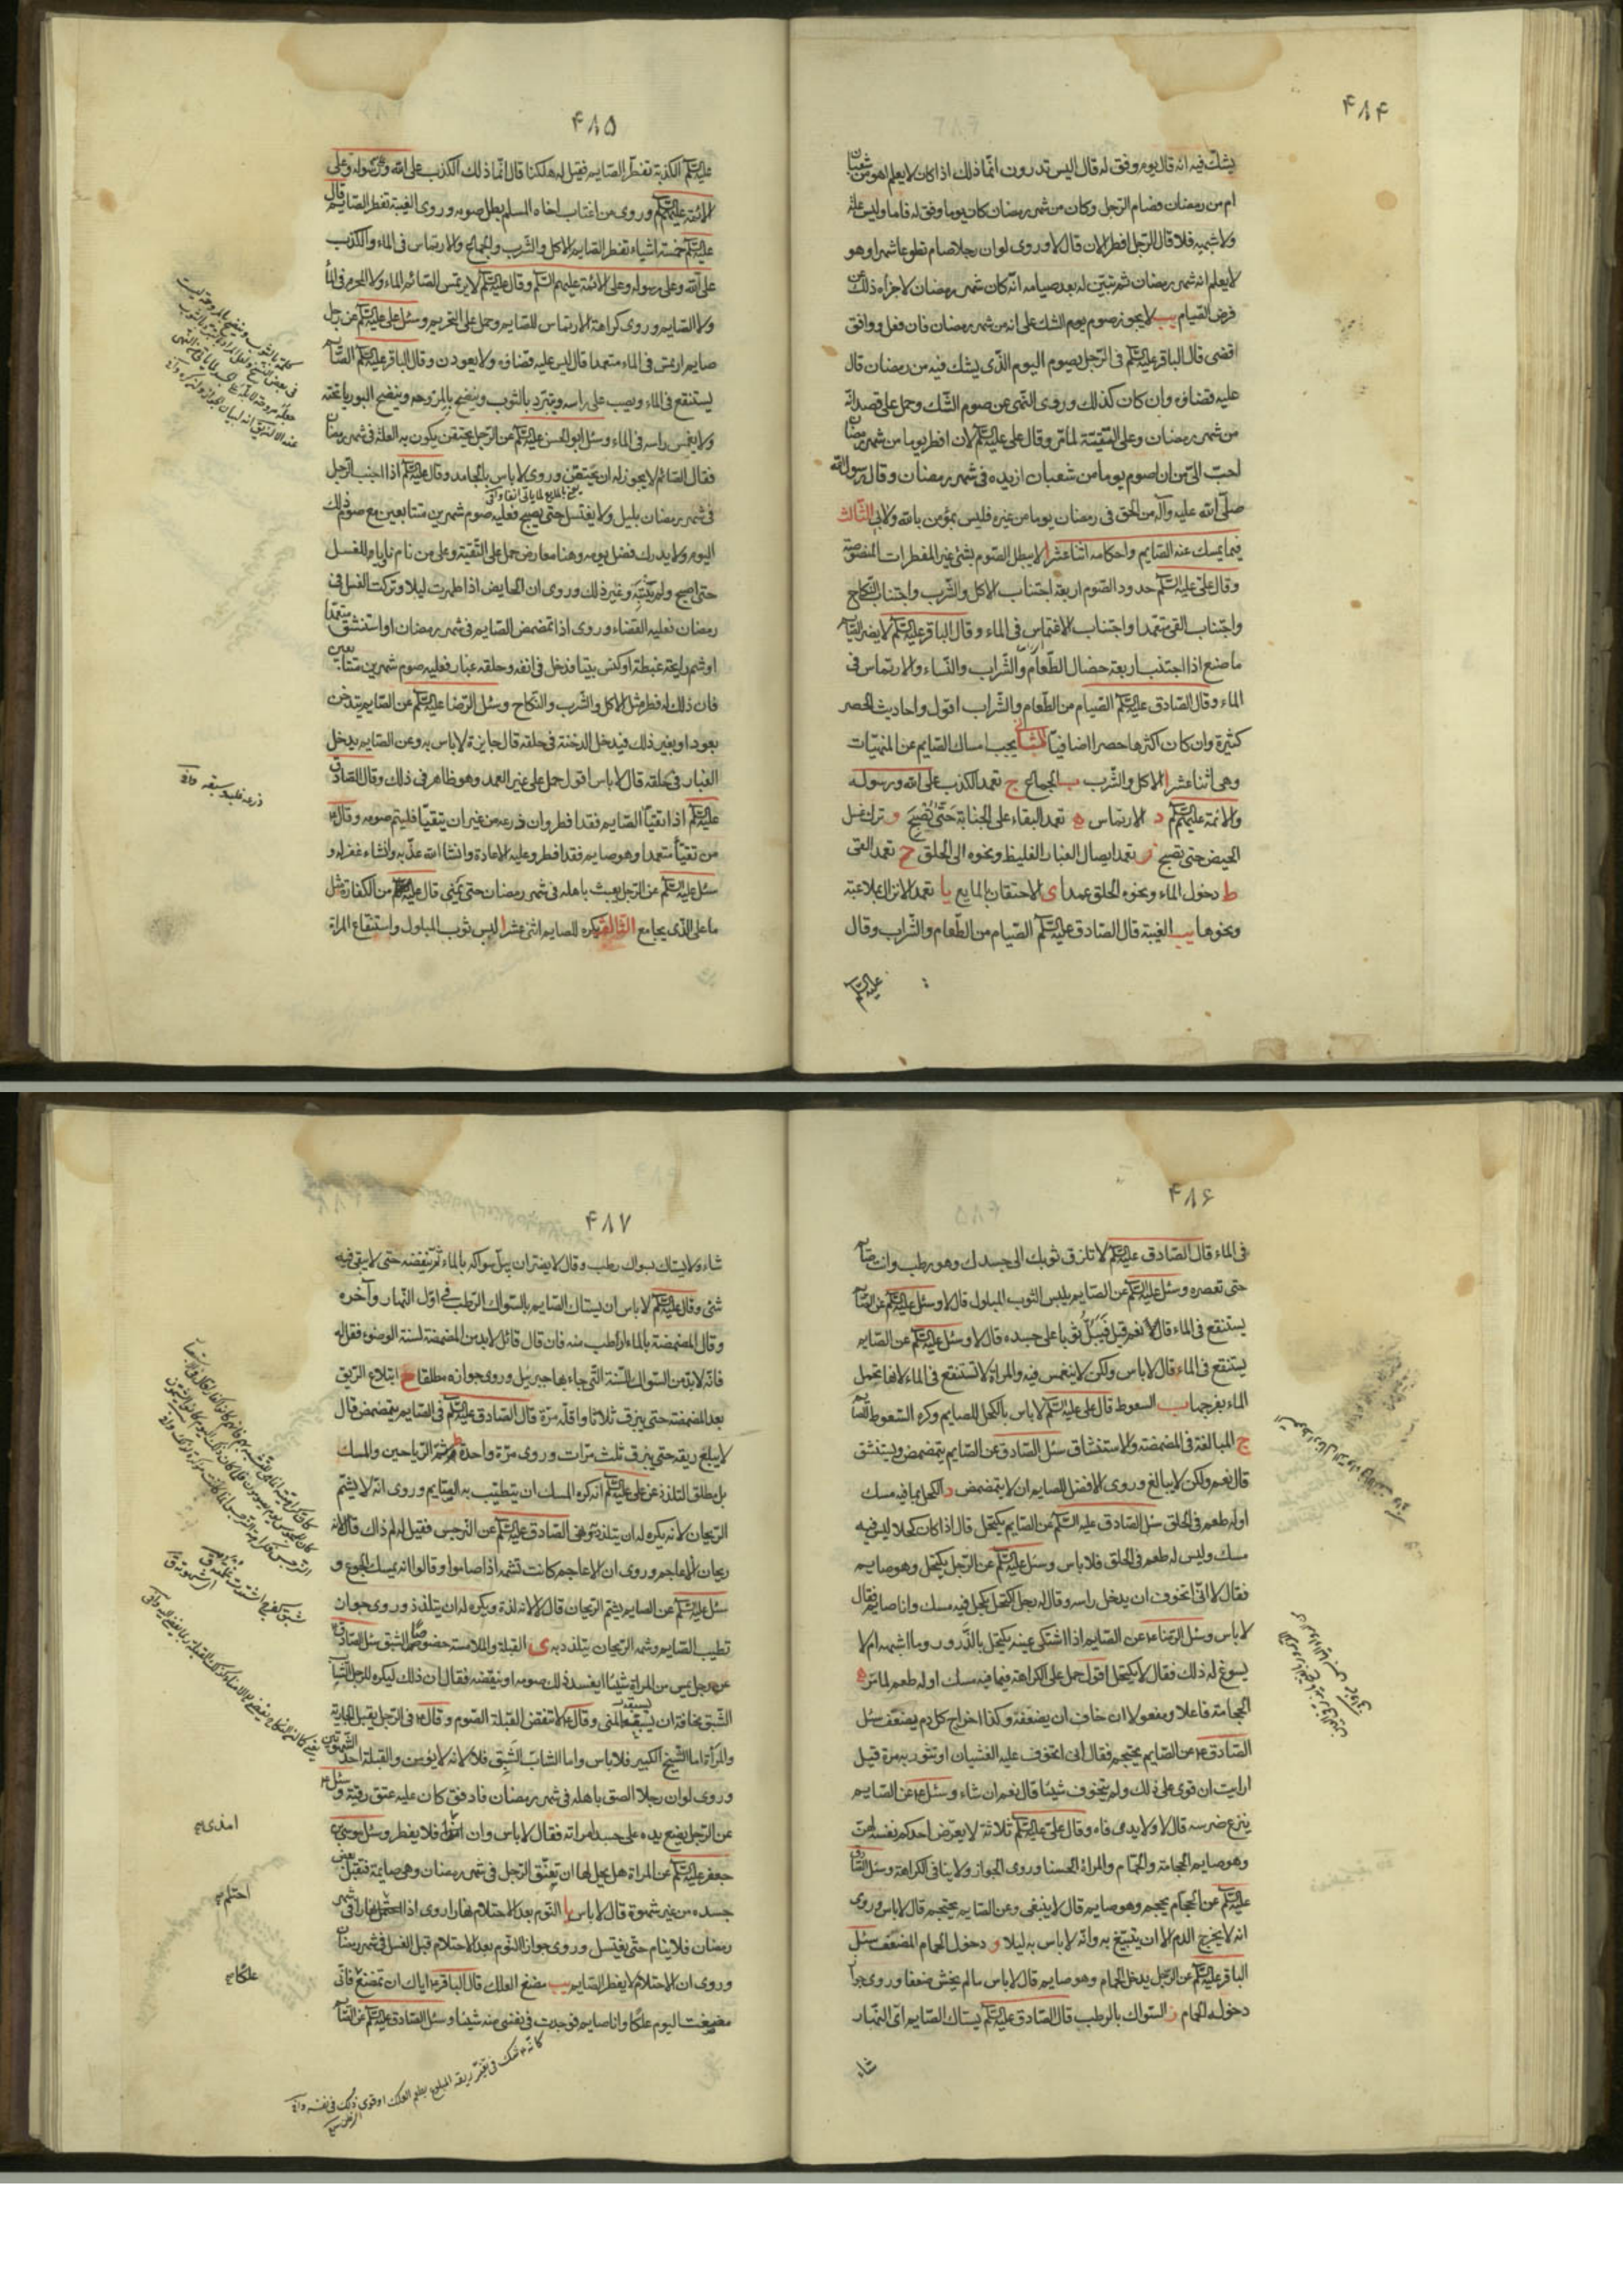 ۴۸۴
يشك فيه انه قال يوم وفق له قال اليس تدرون انما ذلك اذا كان لا يعلم اهو من شعبان
ام من رمضان فصام الرجل وكان من شهر رمضان كان يوما وفق له فاما وليس علة
ولا شبهة فلا قال الرجل افطر الان قال لا وروى لو ان رجلا صام تطوعا شهرا وهو
لا يعلم انه شهر رمضان ثم تبين له بعد صيامه انه كان شهر رمضان لاجزاه ذلك عن
فرض الصيام يب لا يجوز صوم يوم الشك على انه من شهر رمضان فان فعل ووافق
اقضى قال الباقر عليه السلام في الرجل يصوم اليوم الذى يشك فيه من رمضان قال
عليه قضاؤه وان كان كذلك وروى النهى عن صوم الشك وحمل على قصد انه
من شهر رمضان وعلى التقية لما مر وقال على عليه السلام لان افطر يوما من شهر رمضان
احب الى من ان اصوم يوما من شعبان ازيده في شهر رمضان وقال رسول الله
صلى الله عليه وآله من الحق في رمضان يوما من غيره فليس بمؤمن بالله ولا بى الثالث
فيما يمسك عنه الصايم واحكامه اثنا عشر ا لا يبطل الصوم بشئ غير المفطرات المنصوصة
وقال على عليه السلام حدود الصوم اربعة اجتناب الاكل والشرب واجتناب النكاح
واجتناب القى متعمدا واجتناب الاغتماس في الماء وقال الباقر عليه السلام لا يضر الصايم
ما صنع اذا اجتنب اربعة خصال الطعام والشراب والنساء والارتماس في
الماء وقال الصادق عليه السلام الصيام من الطعام والشراب اقول واحاديث الحصر
كثيرة وان كان اكثرها حصرا اضافيا الثانى يجب امساك الصايم عن المنهيات
وهى اثنا عشر ا الاكل والشرب ب الجماع ج تعمد الكذب على الله ورسوله
والائمة عليهم السلام د الارتماس ه تعمد البقاء على الجنابة حتى تصبح و ترك غسل
الحيض حتى تصبح ز تعمد ايصال الغبار الغليظ ونحوه الى الحلق ح تعمد القى
ط دخول الماء ونحوه الحلق عمدا ى الاحتقان بالمايع يا تعمد الانزال بملاعبة
ونحوها يب الغيبة قال الصادق عليه السلام الصيام من الطعام والشراب وقال
عليه السلام
۴۸۵
عليه السلام الكذبة تفطر الصايم فقيل له هلكنا قال انما ذلك الكذب على الله وعلى رسوله وعلى
الائمة عليهم السلام وروى من اغتاب اخاه المسلم بطل صومه وروى الغيبة تفطر الصايم قال
عليه السلام خمسة اشياء تفطر الصايم الاكل والشرب والجماع والارتماس في الماء والكذب
على الله وعلى رسوله وعلى الائمة عليهم السلام وقال عليه السلام لا يرتمس الصائم الماء ولا المحرم في الماء
ولا الصايم وروى كراهة الارتماس للصايم وحمل على التحريم وسئل على عليه السلام عن رجل
صايم ارتمس في الماء متعمدا قال ليس عليه قضاؤه ولا يعودن وقال الباقر عليه السلام الصايم
يستنقع في الماء ويصب على راسه ويتبرد بالثوب وينضح بالمروحة وينضح البوريا تحته
ولا يغمس راسه في الماء وسئل ابو الحسن عليه السلام عن الرجل يحتقن يكون به العلة في شهر رمضان
فقال الصائم لا يجوز له ان يحتقن وروى لا باس بالجامد وقال عليه السلام اذا اجنب الرجل
في شهر رمضان بليل ولا يغتسل حتى يصبح فعليه صوم شهرين متتابعين مع صوم ذلك
اليوم ولا يدرك فضل يومه وهنا معارض حمل على التقية وعلى من نام ناويا للغسل
حتى اصبح ولم ينتبه وغير ذلك وروى ان الحايض اذا طهرت ليلا وتركت الغسل في
رمضان فعليه القضاء وروى اذا تمضمض الصايم في شهر رمضان او استنشق متعمدا
او شم رايحة غليظة او كنس بيتا فدخل في انفه وحلقه غبار فعليه صوم شهرين متتابعين
فان ذلك له فطر مثل الاكل والشرب والنكاح وسئل الرضا عليه السلام عن الصايم يتدخن
بعود او بغير ذلك فيدخل الدخنة في حلقه قال جايز لا باس به وعن الصايم يدخل
الغبار في حلقه قال لا باس اقول حمل على غير العمد وهو ظاهر في ذلك وقال الصادق
عليه السلام اذا تقيأ الصايم فقد افطر وان ذرعه من غير ان يتقيأ فليتم صومه وقال
من تقيأ متعمدا وهو صايم فقد افطر وعليه الاعادة وان شاء الله عذبه وان شاء غفر له و
سئل عليه السلام عن الرجل يعبث باهله في شهر رمضان حتى يمنى قال عليه من الكفارة مثل
ما على الذى يجامع الثالث يكره للصايم اثنى عشر ا لبس ثوب المبلول واستنقاع المراة
ذرعه غلبه وسبقه
۴۸۶
في الماء قال الصادق عليه السلام لا تلزق ثوبك الى جسدك وهو رطب وانت صايم
حتى تعصره وسئل عليه السلام عن الصايم يلبس الثوب المبلول قال لا وسئل عليه السلام عن الصايم
يستنقع في الماء قال نعم قيل فيبل ثوبا على جسده قال لا وسئل عليه السلام عن الصايم
يستنقع في الماء قال لا باس ولكن لا ينغمس فيه والمراة لا تستنقع في الماء لانها تحمل
الماء بفرجها ب السعوط قال على عليه السلام لا باس بالكحل للصايم وكره السعوط للصايم
ج المبالغة في المضمضة والاستنشاق سئل الصادق عن الصايم يتمضمض ويستنشق
قال نعم ولكن لا يبالغ وروى الافضل للصايم ان لا يتمضمض د الكحل بما فيه مسك
او له طعم في الحلق سئل الصادق عليه السلام عن الصايم يكتحل قال اذا كان كحلا ليس فيه
مسك وليس له طعم في الحلق فلا باس وسئل عليه السلام عن الرجل يكتحل وهو صايم
فقال لا انى اتخوف ان يدخل راسه وقال له رجل اكتحل بكحل فيه مسك وانا صايم فقال
لا باس وسئل الرضا عن الصايم اذا اشتكى عينه يكتحل بالذرور وما اشبهه ام لا
يسوغ له ذلك فقال لا يكتحل اقول حمل على الكراهة فيما فيه مسك او له طعم لما مر ه
الحجامة فاعلا ومفعولا ان خاف ان يضعفه وكذا اخراج كل دم يضعف سئل
الصادق عن الصايم يحتجم فقال انى اتخوف عليه الغشيان او تثور به مرة قيل
ارايت ان قوى على ذلك ولم يتخوف شيئا قال نعم ان شاء وسئل عن الصايم
ينزع ضرسه قال لا ولا يدمى فاه وقال على عليه السلام ثلاثة لا يعرض احدكم نفسه لهن
وهو صايم الحجامة والحمام والمراة الحسناء وروى الجواز ولا ينافى الكراهة وسئل الصادق
عليه السلام عن الحجام يحجم وهو صايم قال لا ينبغى وعن الصايم يحتجم قال لا باس وروى
انه لا يخرج الدم الا ان يتبيغ به وانه لا باس به ليلا و دخول الحمام المضعف سئل
الباقر عليه السلام عن الرجل يدخل الحمام وهو صايم قال لا باس ما لم يخش ضعفا وروى جواز
دخوله الحمام ز السواك بالرطب قال الصادق عليه السلام يستاك الصايم اى النهار
شاء
۴۸۷
شاء ولا يستاك بسواك رطب وقال لا يضر ان يبل سواكه بالماء ثم ينفضه حتى لا يبقى فيه
شئ وقال عليه السلام لا باس ان يستاك الصايم بالسواك الرطب في اول النهار وآخره
وقال المضمضة بالماء ارطب منه فان قال قائل لا بد من المضمضة لسنة الوضوء فقل له
فانه لا بد من السواك للسنة التى جاء بها جبريل وروى جوازه مطلقا ح ابتلاع الريق
بعد المضمضة حتى يبزق ثلاثا واقله مرة قال الصادق عليه السلام في الصايم يتمضمض قال
لا يبلع ريقه حتى يبزق ثلث مرات وروى مرة واحدة ط شم الرياحين والمسك
بل مطلق التلذذ عن على عليه السلام انه كره المسك ان يتطيب به الصايم وروى انه لا يشم
الريحان لانه يكره له ان يتلذذ ونهى الصادق عليه السلام عن النرجس فقيل له لم ذاك قال لانه
ريحان الاعاجم وروى ان الاعاجم كانت تشمه اذا صاموا وقالوا انه يمسك الجوع و
سئل عليه السلام عن الصايم يشم الريحان قال لا لانه لذة ويكره له ان يتلذذ وروى جواز
تطيب الصايم وشمه الريحان يتلذذ به ى القبلة والملامسة خصوصا الشبق سئل الصادق
عن رجل يمس من المراة شيئا ايفسد ذلك صومه او ينقضه فقال ان ذلك ليكره للرجل الشاب
الشبق مخافة ان يسبقه المنى وقال لا تنقض القبلة الصوم وقال في الرجل يقبل الجارية
والمراة اما الشيخ الكبير فلا باس واما الشاب الشبق فلا لانه لا يؤمن والقبلة احد الشهوتين
وروى لو ان رجلا الصق باهله في شهر رمضان فادفق كان عليه عتق رقبة وسئل
عن الرجل يضع يده على جسد امراته فقال لا باس وان امذى فلا يفطر وسئل موسى بن
جعفر عليه السلام عن المراة هل يحل لها ان تعتنق الرجل في شهر رمضان وهى صايمة فتقبل بعض
جسده من غير شهوة قال لا باس يا النوم بعد الاحتلام نهارا روى اذا احتلم نهارا في شهر
رمضان فلا ينام حتى يغتسل وروى جواز النوم بعد الاحتلام قبل الغسل في شهر رمضان
وروى ان الاحتلام لا يفطر الصايم يب مضغ العلك قال الباقر اياك ان تمضغ فانى
مضغت اليوم علكا وانا صايم فوجدت في نفسى منه شيئا وسئل الصادق عليه السلام عن الصايم
امذى
احتلم
علكا